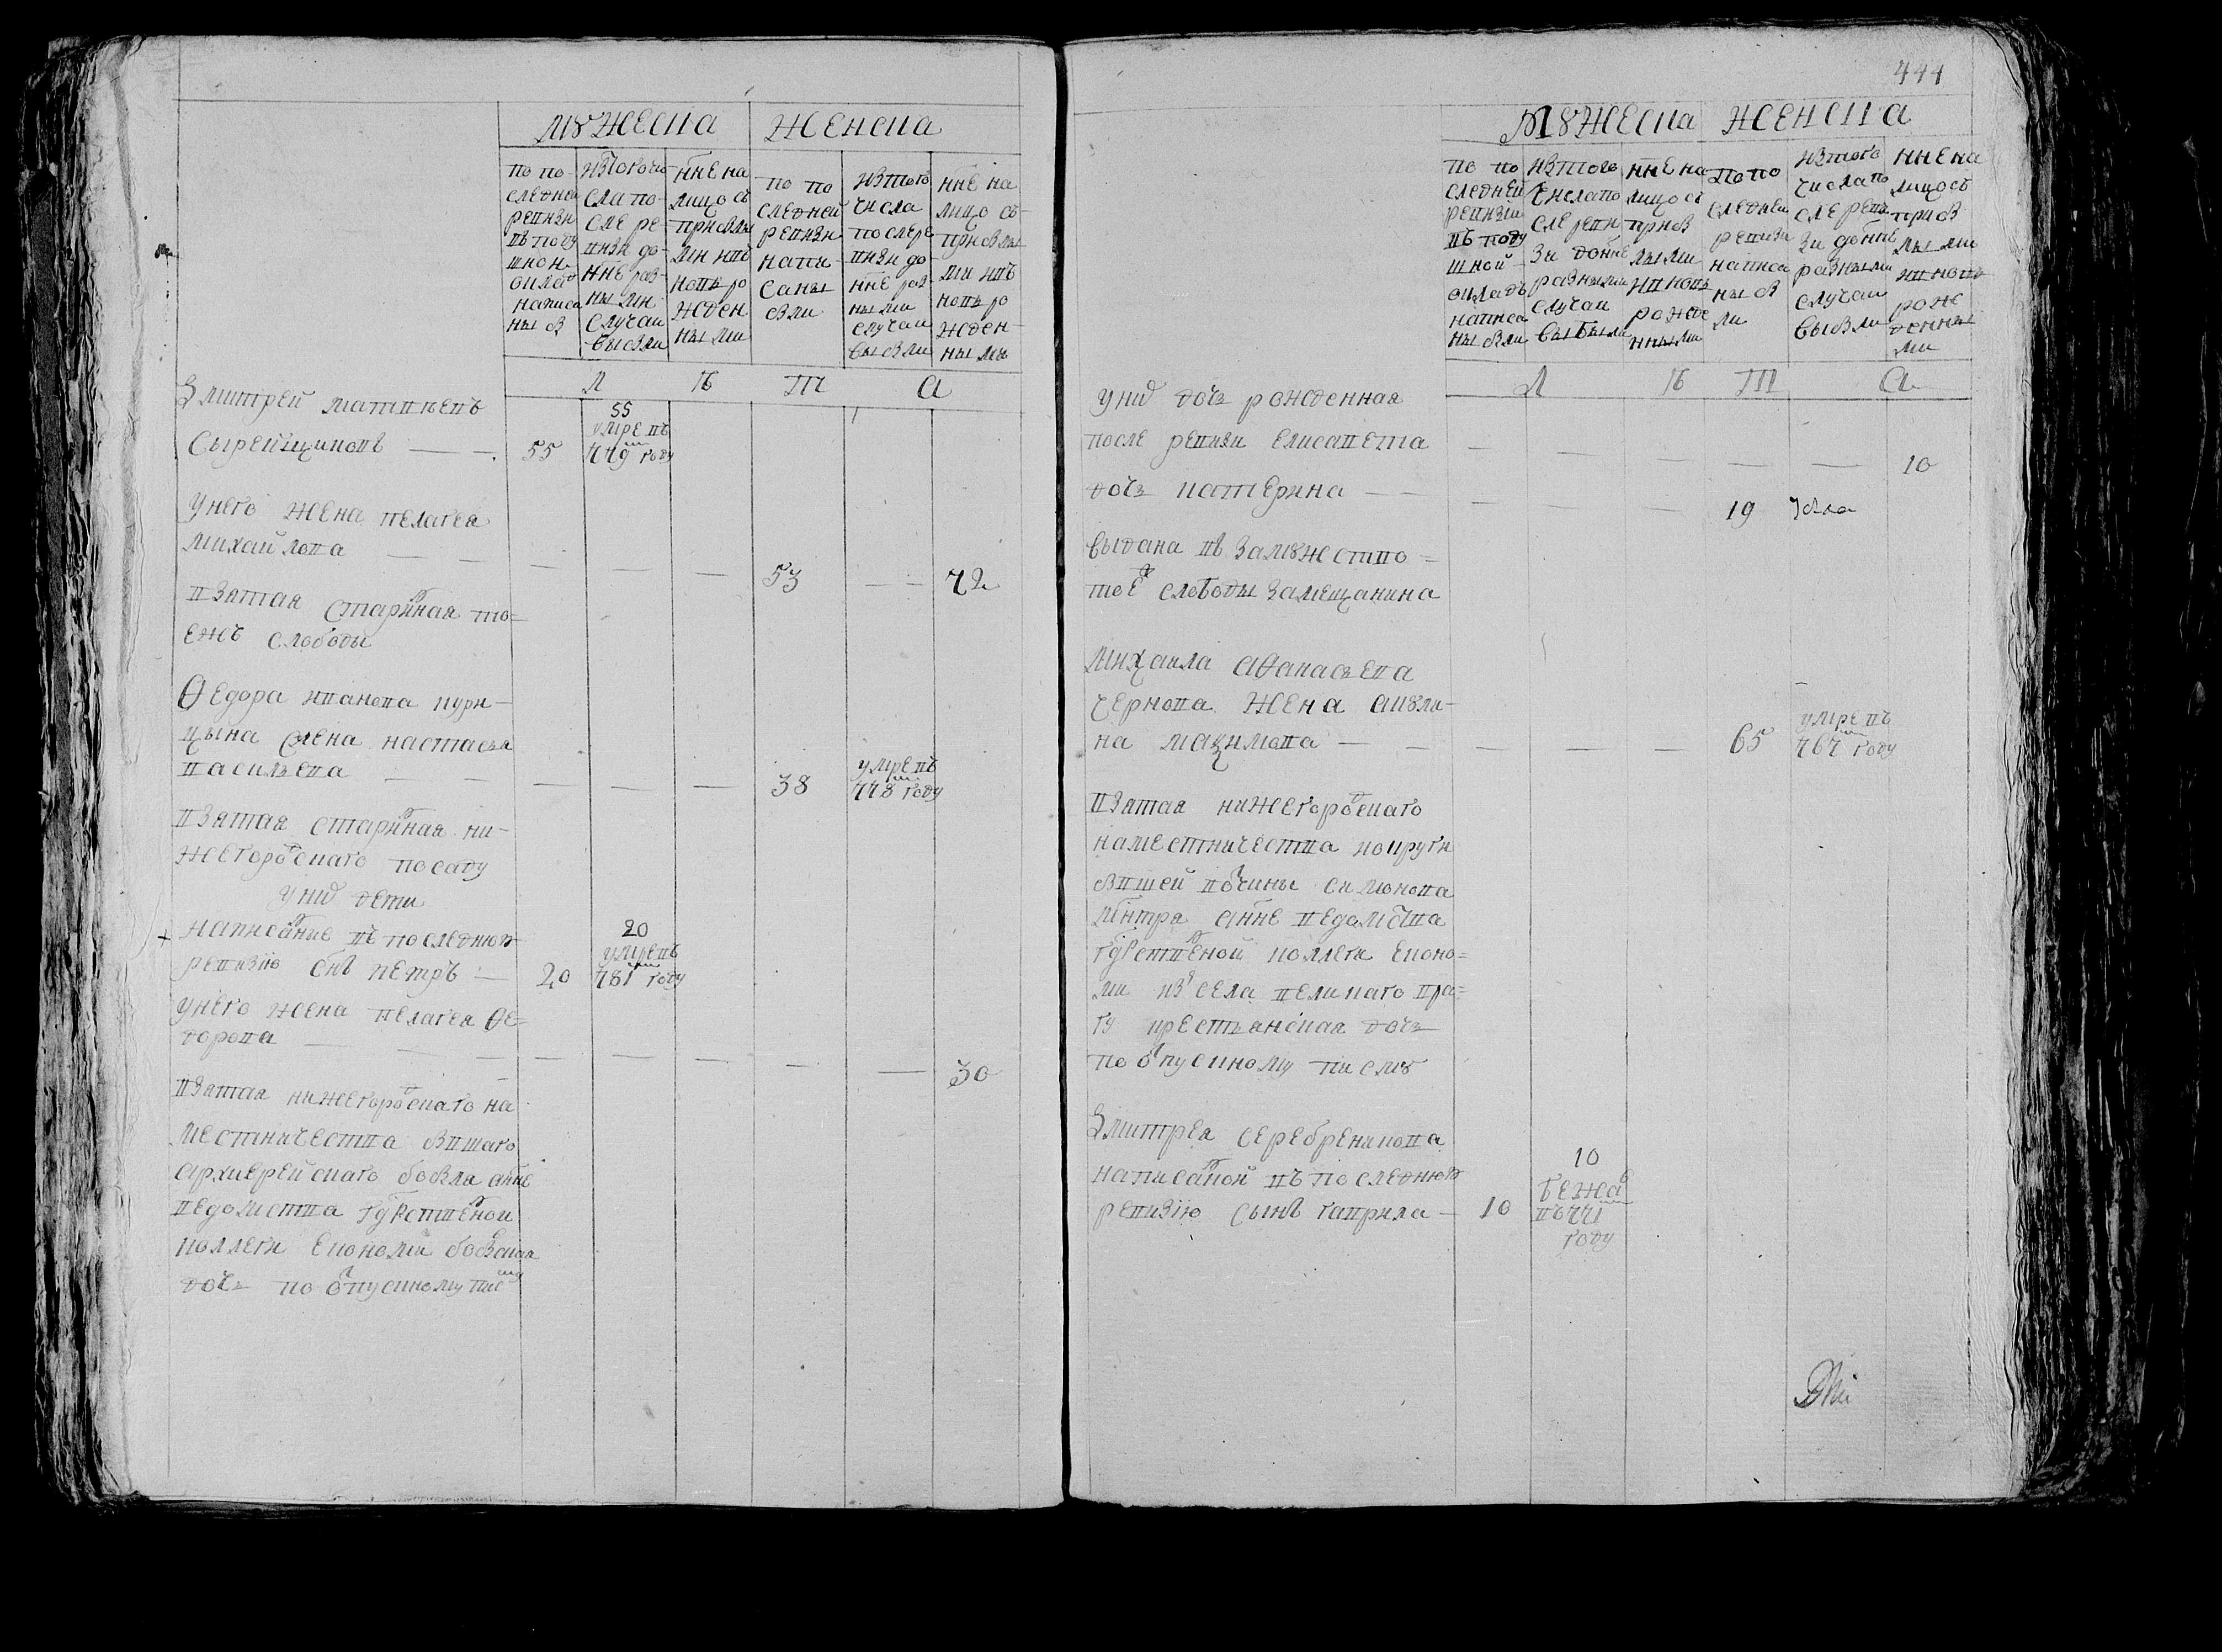 444
мꙋжеска женска
по по-
следней
ревизи
въ поду
шнои
окла
написа
ны б
изтого чи
сла по-
сле ре
визи до
нне раз
ными
случаи
выбыли
нне на
лицо съ
прибылы
ми нъ
новь ро
жден
ными
по по
следней
ревизи
напи
саны
были
изтого
числа
после ре
визи до
нне раз
ными
случаи
выбыли
нне на
лицо съ
прибылы
ми въ
новь ро
жден
ными
л в т а
Дмитрей матвѣевъ
Сырейщиковъ 55 55 умре въ 779м году
унего жена пелагея
михайлова 53 72
взятая старинная то=
ежъ слободы
Ѳедора иванова кури-
цына жена настасья
васильева 38 умре въ 778м году
взятая старинная ни-
жегородскаго посаду
у ниѡ дети
написанные въ последнюю
ревизию снъ петръ 20 20 умре въ 781м году
унего жена пелагея Ѳе=
дорова 30
взятая нижегородскаго на
местничества бвшаго
архиерейскаго бобыля а нне
ведомства гдрственной
коллеги економи бобылская
дочь по отпускному писму
мꙋжеска женска
по по
следней
ревизии
въ поду
шной
окладъ
написа
ны были
изтого
числа по
сле реви
зи до нне
разными
случаи
выбыли
нне на
лицо съ
приб
лыми
и вновь
рожде
нными
по по
следней
ревизи
написа
ны б
ли
изтого
числа по
сле реви
зи до нне
разными
случаи
выбыли
нне на
лицо съ
приб
лыми
и вновь
рож
денны
ми
л в т а
у ниѡ дочь рожденная
после ревизи елисавета 10
дочь катерина 19
выдана въ замꙋжство =
тоей слободы за мещанина
михаила аѳанасьева
чернова жена акꙋли-
на макзимова 65 умре въ 767м году
взятая нижегородскаго
наместничества покруги
бвшей вотчины симонова
мнтра а нне ведомства
гдрственой коллеги еконо=
ми из села великаго вра=
гу крестьянская дочь
по отпускному писмꙋ
Дмитрея серебреникова
написанной въ последнюю
ревизию сынъ гаврила 10 10 бежав въ 771м году